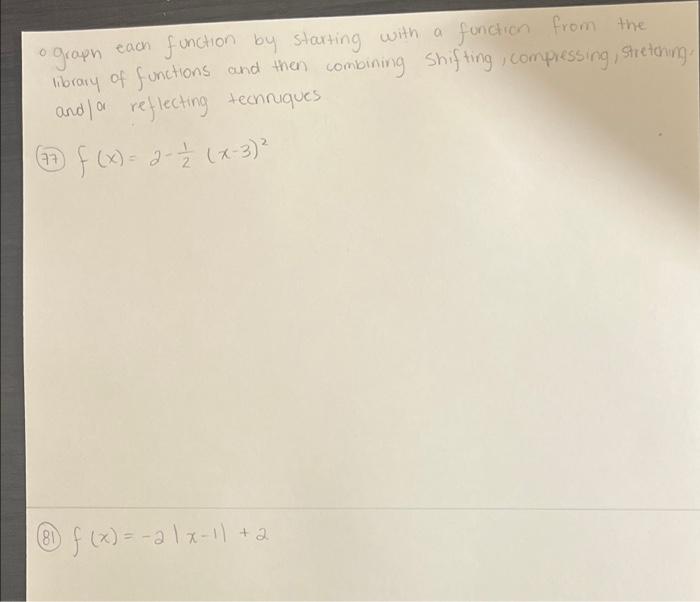 o graph each function by starting with a function from the
library of functions and then combining shifting, compressing, stretching,
and/or reflecting techniques
77 f(x) = 2 - 1/2 (x-3)²
81 f(x) = -2|x-1| + 2